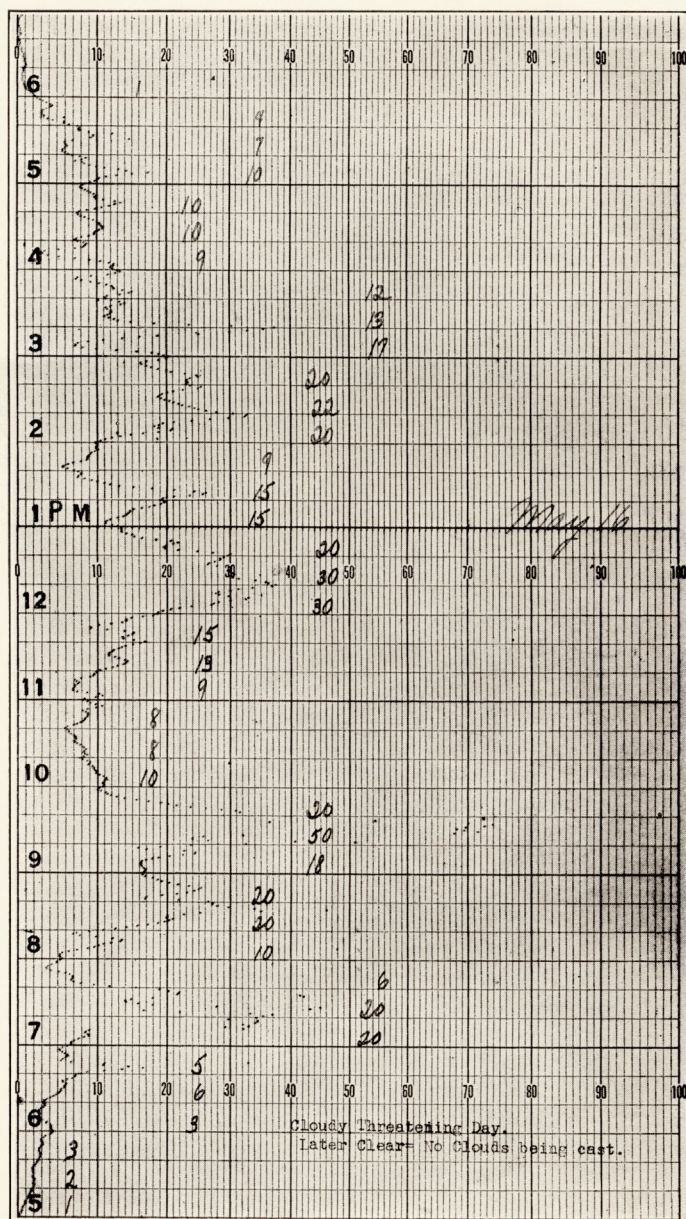 0 10 20 30 40 50 60 70 80 90 100
6
9
7
5 10
10
10
4 9
12
13
3 17
20
22
2 20
9
15
1 P M 15 May 16
20
0 10 20 30 40 50 60 70 80 90 100
30
12 30
15
13
11 9
8
8
10 10
20
50
9 18
20
20
8 10
6
20
7 20
5
0 10 20 30 40 50 60 70 80 90 100
6
6 3 Cloudy Threatening Day.
3 Later Clear= No Clouds being cast.
2
5 1